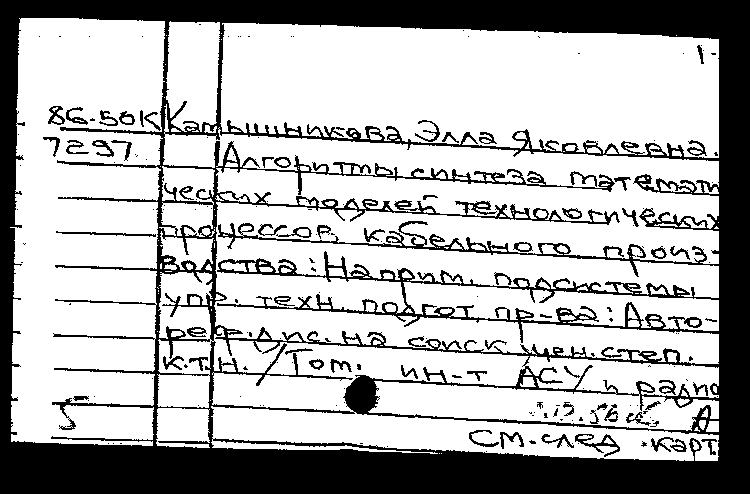 1-
86-50К Камышникова, Элла Яковлевна.
7297 Алгоритмы синтеза математи
ческих моделей технологических
процессов кабельного произ-
водства: На прим. подсистемы
упр. техн. подгот. пр-ва: Авто-
реф. дис. на соиск. учен. степ.
к.т.н. / Том. ин-т АСУ и радио
5 А
см. след. карт